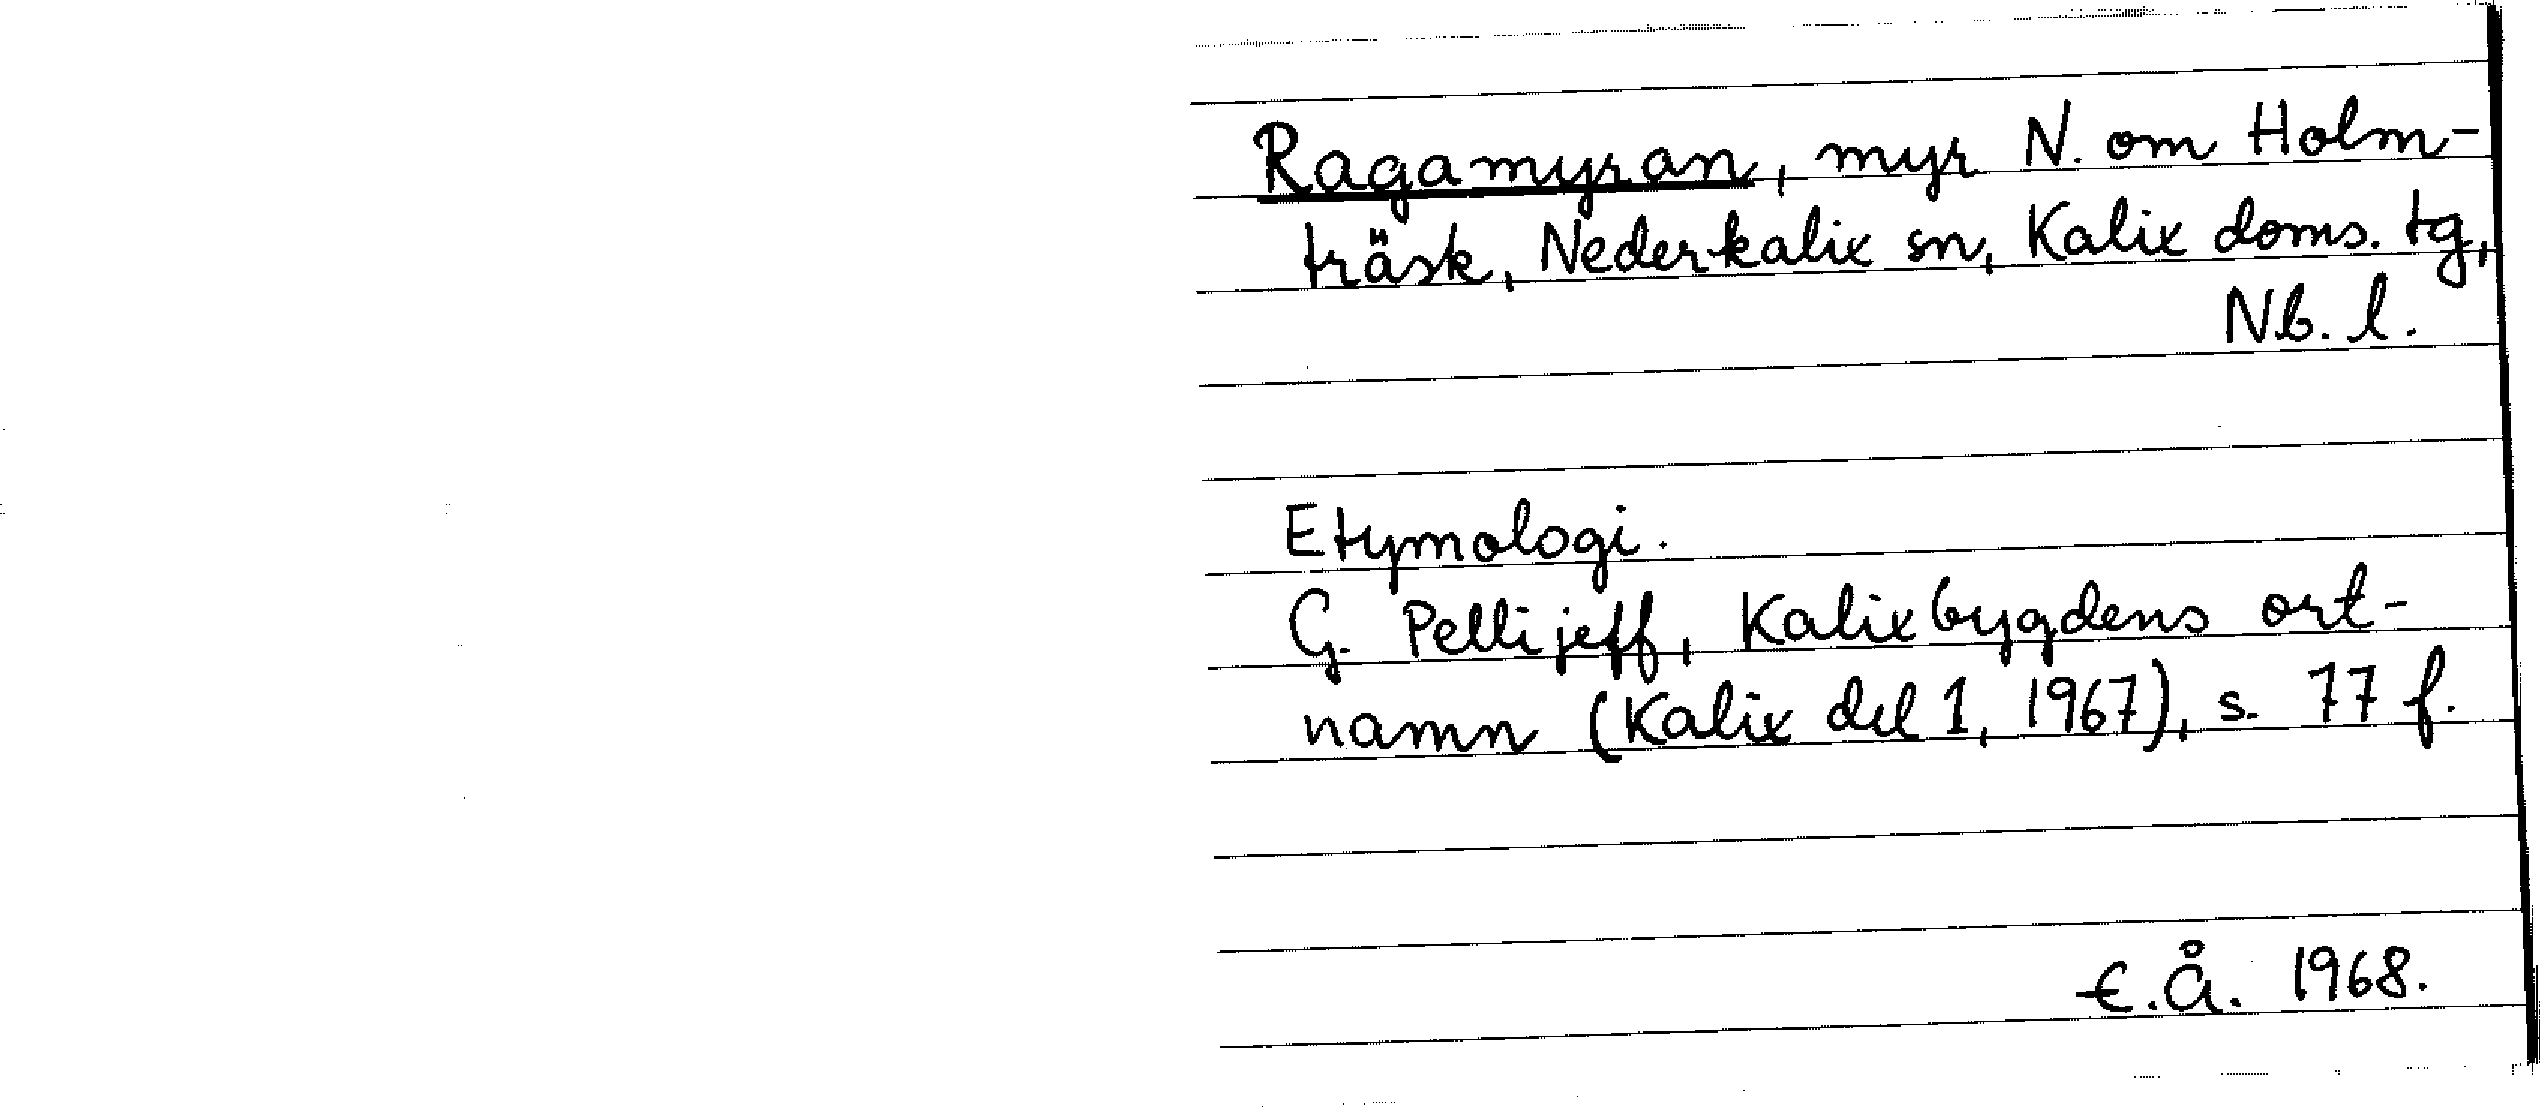 Ragamyran, myr N. om Holm-
träsk, Nederkalix sn, Kalix doms. tg,
Nb. l.
Etymologi.
G. Pellijeff, Kalixbygdens ort-
namn (Kalix del 1, 1967), s. 77 f.
E.Å. 1968.